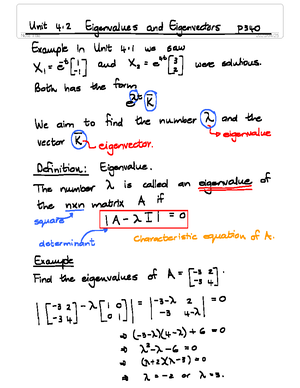 Unit 4.2 Eigenvalues and Eigenvectors p340
Example In Unit 4.1 we saw
X₁ = e^{-2t} [2; 1] and X₂ = e^{5t} [3; 2] were solutions.
Both has the form
e^{λt} K
We aim to find the number λ and the
eigenvalue
vector K
eigenvector.
Definition: Eigenvalue.
The number λ is called an eigenvalue of
the n×n matrix A if
square
|A - λI| = 0
determinant
Characteristic equation of A.
Example
Find the eigenvalues of A = [-3 2; -3 4].
|[-3 2; -3 4] - λ[1 0; 0 1]| = |-3-λ 2; -3 4-λ| = 0
⇒ (-3-λ)(4-λ) + 6 = 0
⇒ λ² - λ - 6 = 0
⇒ (λ+2)(λ-3) = 0
⇒ λ = -2 or λ = 3.